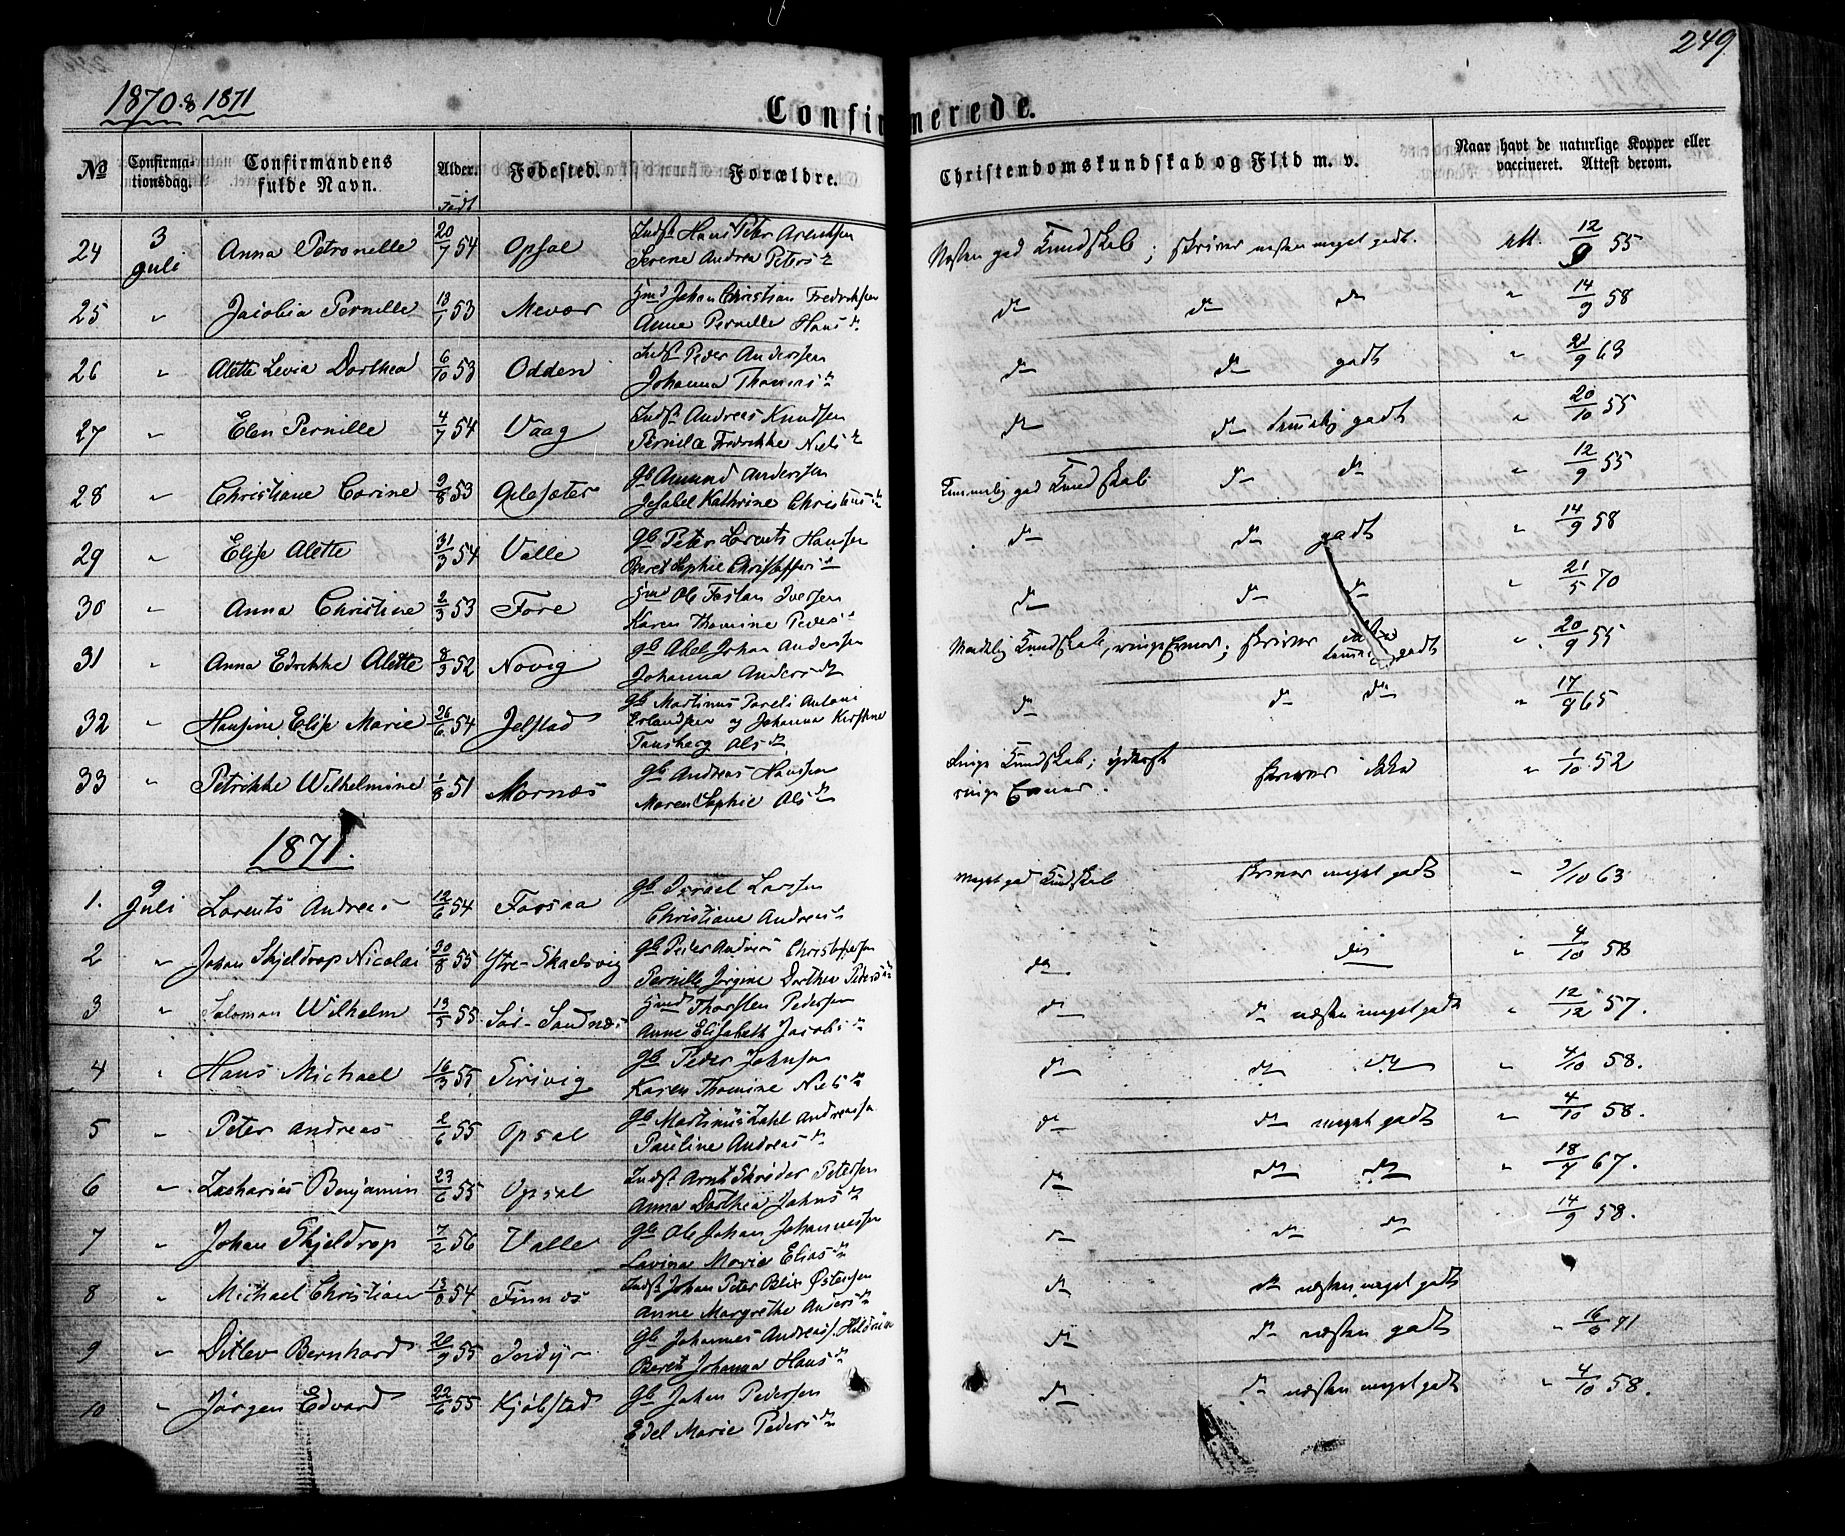 249
1870 & 1871
Confirmerede.
No
Confirmationsdag.
Confirmandens fulde Navn.
Alder.
Født
Fødested.
Forældre.
Christendomskundskab og Flid m. v.
Naar havt de naturlige Kopper eller vaccineret. Attest derom.
24 3 Juli Anna Petronelle 20/7 54 Opsal Indst Hans Peter Arentsen
Serene Andrea Petersdr
Næsten god Kundskab; skriver næsten meget godt. att. 12/9 55
25 " Jacobia Pernille 13/1 53 Mevær Gmd Johan Christian Fredriksen
Anne Pernille Hansdr
do do do " 14/9 58
26 " Alette Levia Dorthea 6/10 53 Odden Indst Peder Anderssen
Johanna Thomasdr
do do godt " 21/9 63
27 " Elen Pernille 4/7 54 Vaag Indst Andreas Knudsen
Pernilla Fredrikke Nielsdr
do do temmelig godt " 20/10 55
28 " Christiane Carine 9/8 53 Gilesæter Gb Amund Anderssen
Jesabel Kathrine Christensdr
Temmelig god Kundskab do do " 12/9 55
29 " Elise Alette 31/3 54 Valle Gb Peter Lorents Hanssen
Beret Sophie Christoffersdr
do do godt " 14/9 58
30 " Anna Christine 2/3 53 Fore Gmd Ole Fostan Iversen
Karen Thomine Pedersdr
do do do " 21/5 70
31 " Anna Edrikke Alette 8/3 52 Novig Gb Abel Johan Anderssen
Johanna Andersdr
Maadelig Kundskab, ringe Evner; skriver godt " 20/9 55
32 " Hansine Elise Marie 26/6 54 Jelstad Gb Martinus Pareli Antoni
Erlandsen og Johanna Kirstine
Tonsberg Olsdr
do do do " 17/9 65
33 " Petrikke Wilhelmine 1/8 51 Mornæs Gb Andreas Hanssen
Maren Sophie Olsdr
Ringe Kundskab; yderst
ringe Evner. skriver ikke " 1/10 52
1871.
1. 9 Juli Lorents Andreas 12/6 54 Forsaa Gb Israel Larssen
Christiane Andreasdr
Meget god Kundskab skriver meget godt " 3/10 63
2 " Johan Skjeldrop Nicolai 20/8 55 Ytre-Skaelsvig Gb Peder Andreas Christophersen
Pernille Jørgine Dorthea Petersdr
do do " 4/10 58
3 " Salomon Wilhelm 13/5 55 Sør-Sandnæs Gmd Thorsten Pedersen
Anne Elisabeth Jacobsdr
do do næsten meget godt " 12/12 57.
4 " Hans Michael 16/3 55 Sørivig Gb Peder Johnsen
Karen Thomine Nielsdr
do do do " 4/10 58.
5 " Peter Andreas 2/6 55 Opsal Gb Martinus Zahl Andreasen
Pauline Andreasdr
do do meget godt " 4/10 58.
6 " Zacharias Benjamin 23/6 55 Opsal Indst Arnt Skrøder Petersen
Anna Dorthea Johnsdr
do do do " 18/7 67.
7 " Johan Skjeldrop 7/2 56 Valle Gb Ole Johan Johannessen
Lavina Marie Eliasdr
do do do 14/9 58.
8 " Michael Christian 54 Finnæs Indst Johan Peter Blix Østensen
Anne Margrethe Andersdr
do do næsten meget godt
9 " Ditlev Bernhard 20/9 55 Indyr Gb Johannes Andreas
Beret Johanna Hansdr
do do næsten godt "
10 " Jørgen Edvard 22/6 55 Kjøbstad Gb Johan Pedersen
Edel Marie Pedersdr
do do næsten meget godt " 4/10 58.